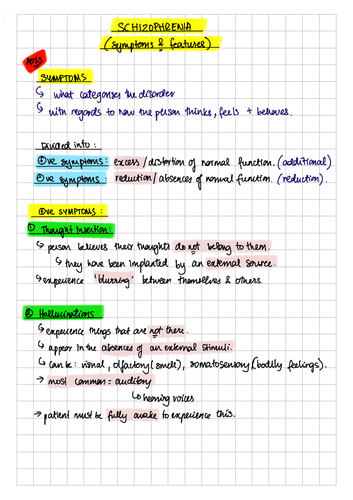 SCHIZOPHRENIA
(symptoms & features)
SYMPTOMS
↳ what categorises the disorder
↳ with regards to how the person thinks, feels + behaves.
Divided into:
⊕ve symptoms: excess/distortion of normal function. (additional)
⊖ve symptoms: reduction/absences of normal function. (reduction).
⊕ve SYMPTOMS:
① Thought Insertion:
↳ person believes their thoughts do not belong to them.
↳ they have been implanted by an external source.
↳ experience 'blurring' between themselves & others.
② Hallucinations
↳ experience things that are not there.
↳ appear in the absences of an external stimuli.
↳ can be: visual, olfactory (smell), somatosensory (bodily feelings).
→ most common = auditory
↳ hearing voices
→ patient must be fully awake to experience this.